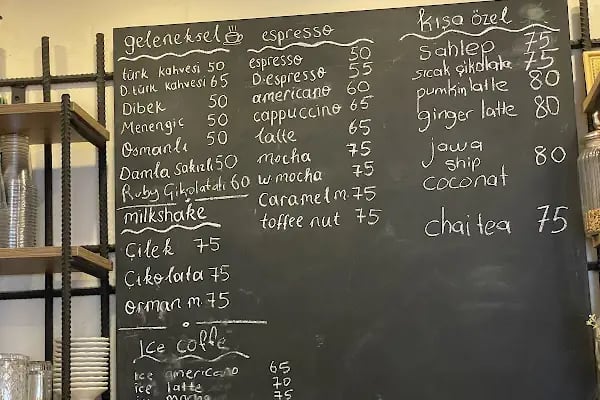 geleneksel
türk kahvesi 50
D.türk kahvesi 65
Dibek 50
Menengic 50
Osmanlı 50
Damla Sakızlı 50
Ruby Çikolatalı 60
milkshake
Çilek 75
Çikolata 75
orman m. 75
Ice coffe
ice americano 65
ice latte 70
ice mocha 75
espresso
espresso 50
D.espresso 55
americano 60
cappuccino 65
latte 65
mocha 75
w.mocha 75
Caramel m. 75
toffee nut 75
kışa özel
Sahlep 75
sıcak çikolata 75
pumkin latte 80
ginger latte 80
jawa
ship 80
coconat
chai tea 75